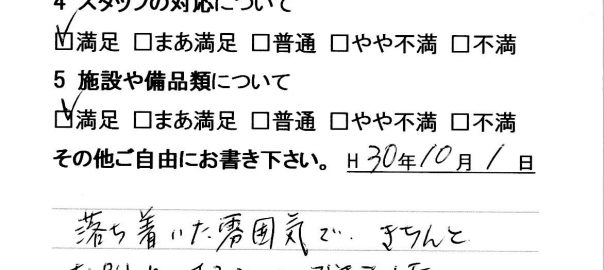 4 スタッフの対応について
☑満足 □まあ満足 □普通 □やや不満 □不満
5 施設や備品類について
☑満足 □まあ満足 □普通 □やや不満 □不満
その他ご自由にお書き下さい。 H 30年10月1日
落ち着いた雰囲気で、きちんと